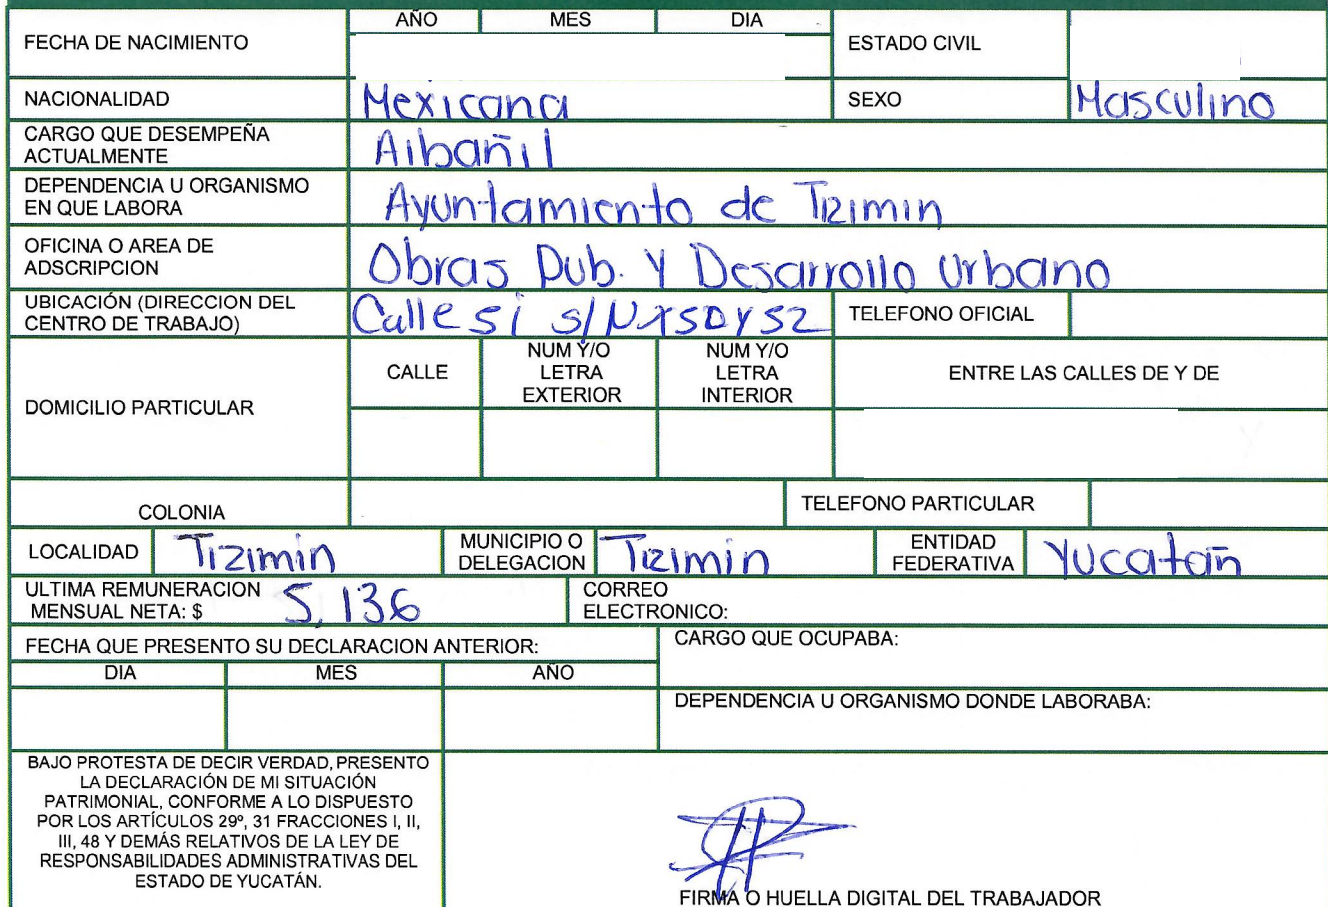 AÑO MES DIA
FECHA DE NACIMIENTO ESTADO CIVIL
NACIONALIDAD Mexicana SEXO Masculino
CARGO QUE DESEMPEÑA
ACTUALMENTE Albañil
DEPENDENCIA U ORGANISMO
EN QUE LABORA Ayuntamiento de Tizimin
OFICINA O AREA DE
ADSCRIPCION Obras Pub. Y Desarrollo Urbano
UBICACIÓN (DIRECCION DEL
CENTRO DE TRABAJO) Calle 51 s/N x 50 y 52 TELEFONO OFICIAL
DOMICILIO PARTICULAR
CALLE
NUM Y/O
LETRA
EXTERIOR
NUM Y/O
LETRA
INTERIOR
ENTRE LAS CALLES DE Y DE
COLONIA TELEFONO PARTICULAR
LOCALIDAD Tizimin
MUNICIPIO O
DELEGACION Tizimin
ENTIDAD
FEDERATIVA Yucatán
ULTIMA REMUNERACION
MENSUAL NETA: $ 5,136
CORREO
ELECTRONICO:
FECHA QUE PRESENTO SU DECLARACION ANTERIOR:
CARGO QUE OCUPABA:
DIA MES AÑO
DEPENDENCIA U ORGANISMO DONDE LABORABA:
BAJO PROTESTA DE DECIR VERDAD, PRESENTO
LA DECLARACIÓN DE MI SITUACIÓN
PATRIMONIAL, CONFORME A LO DISPUESTO
POR LOS ARTÍCULOS 29º, 31 FRACCIONES I, II,
III, 48 Y DEMÁS RELATIVOS DE LA LEY DE
RESPONSABILIDADES ADMINISTRATIVAS DEL
ESTADO DE YUCATÁN.
FIRMA O HUELLA DIGITAL DEL TRABAJADOR